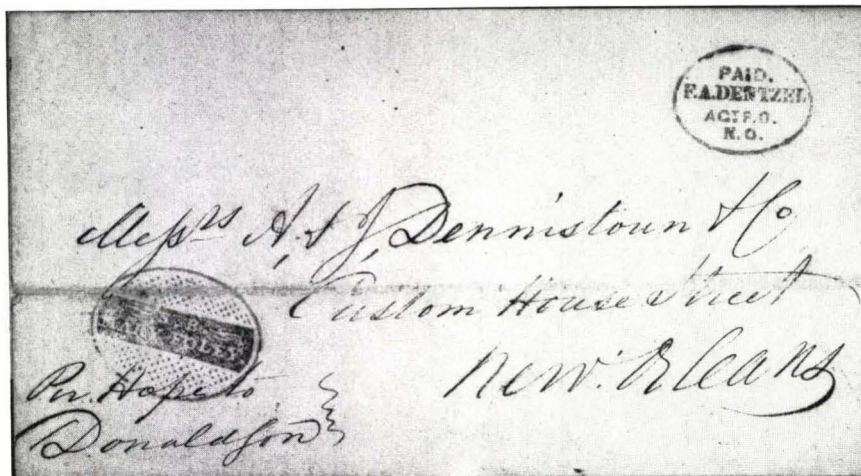 PAID.
F.A.DENTZEL
AGT P.O.
N.O.
Messrs A & J, Dennistoun & Co
Custom House Street
New Orleans
Pr. Hope to
Donaldson